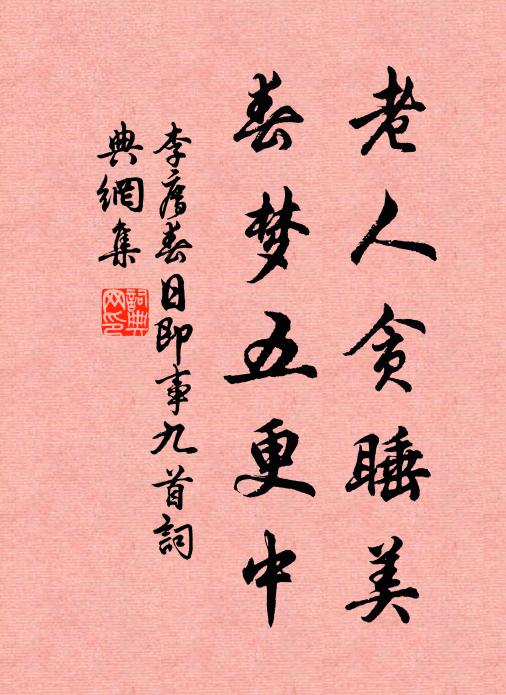 老人贪睡美
春梦五更中
李廌春日即事九首詞
典網集
詞典
网印